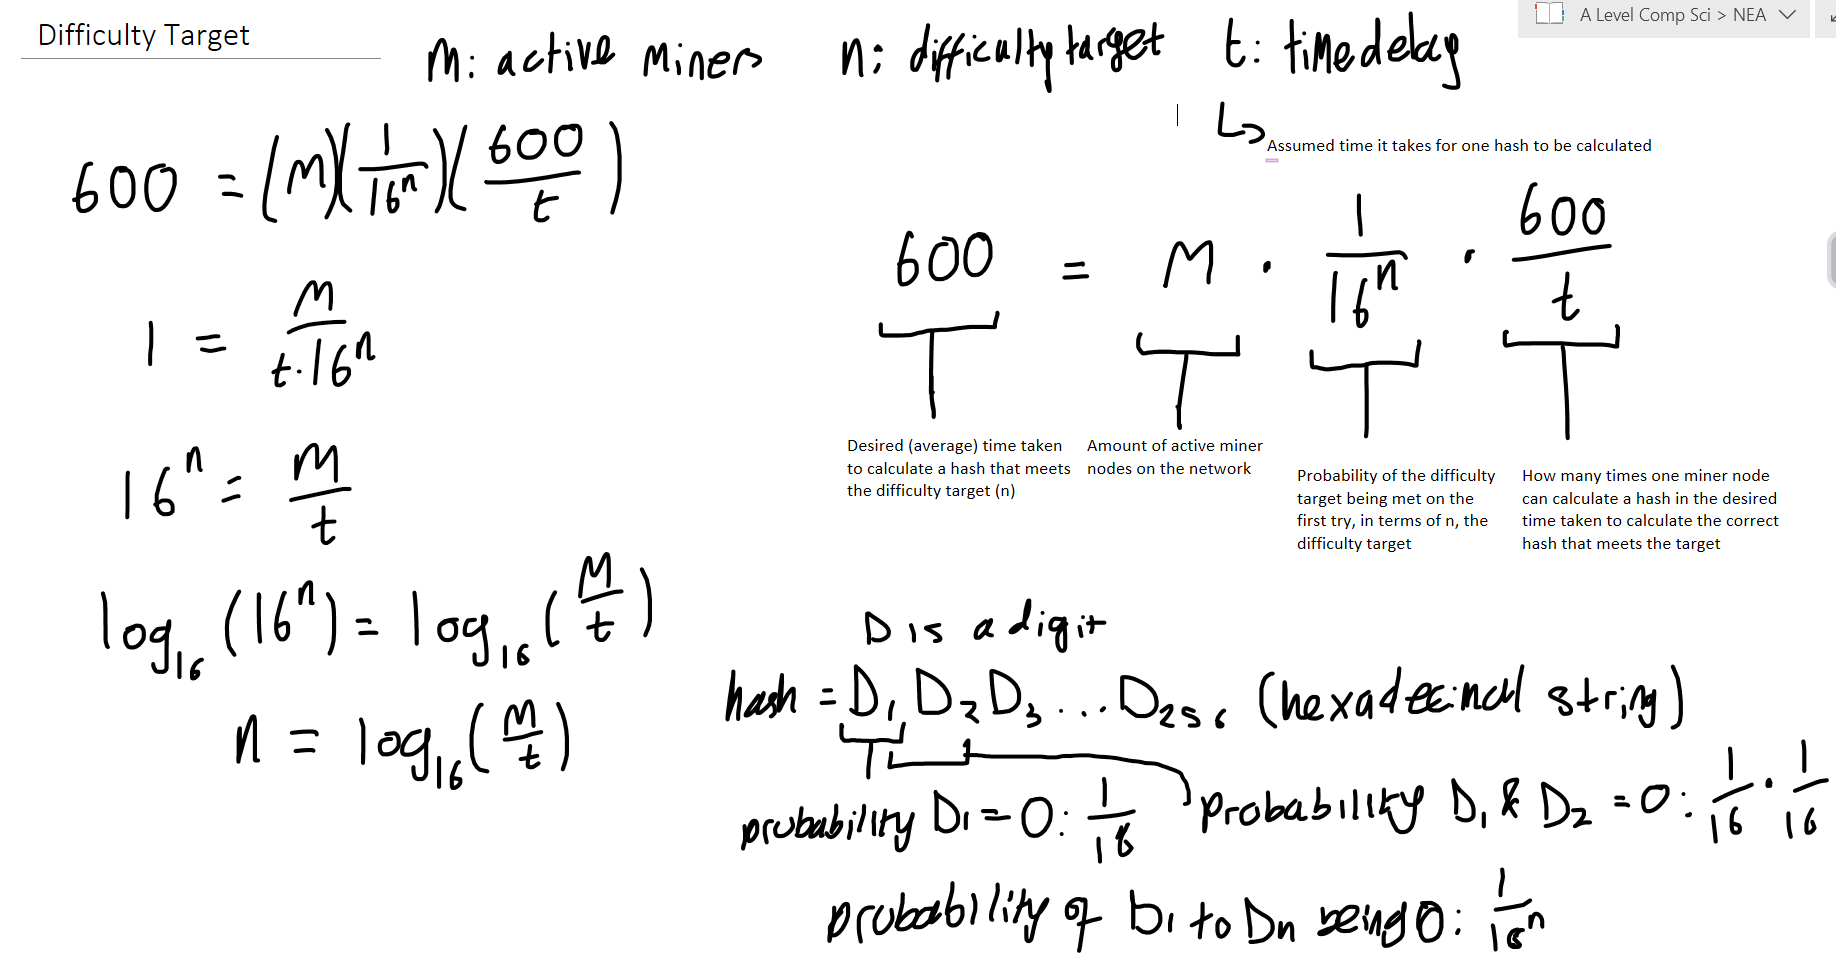 Difficulty Target
A Level Comp Sci > NEA
m: active miners n: difficulty target t: time delay
Assumed time it takes for one hash to be calculated
600 = (m)(1/16^n)(600/t)
1 = m/t·16^n
16^n = m/t
log₁₆(16^n) = log₁₆(m/t)
n = log₁₆(m/t)
600 = m · 1/16^n · 600/t
Desired (average) time taken
to calculate a hash that meets
the difficulty target (n)
Amount of active miner
nodes on the network
Probability of the difficulty
target being met on the
first try, in terms of n, the
difficulty target
How many times one miner node
can calculate a hash in the desired
time taken to calculate the correct
hash that meets the target
D is a digit
hash = D₁ D₂ D₃ ... D₂₅₆ (hexadecimal string)
probability D₁ = 0: 1/16
probability D₁ & D₂ = 0: 1/16 · 1/16
probability of D₁ to Dn being 0: 1/16^n